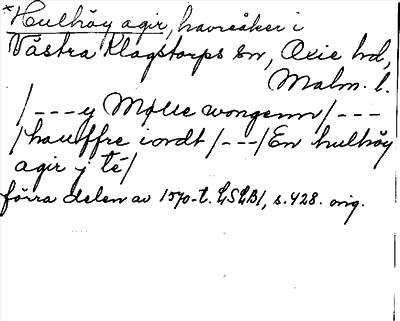 *Hulhöy agir, havreåker i
Västra Klagstorps sn, Oxie hd,
Malm. l.
/ - - - y Mølle wongenn / - - -
/ hauffre iordt / - - - / En hulhöy
agir y té /
förra delen av 1570-t. LSLB1, s. 428. orig.